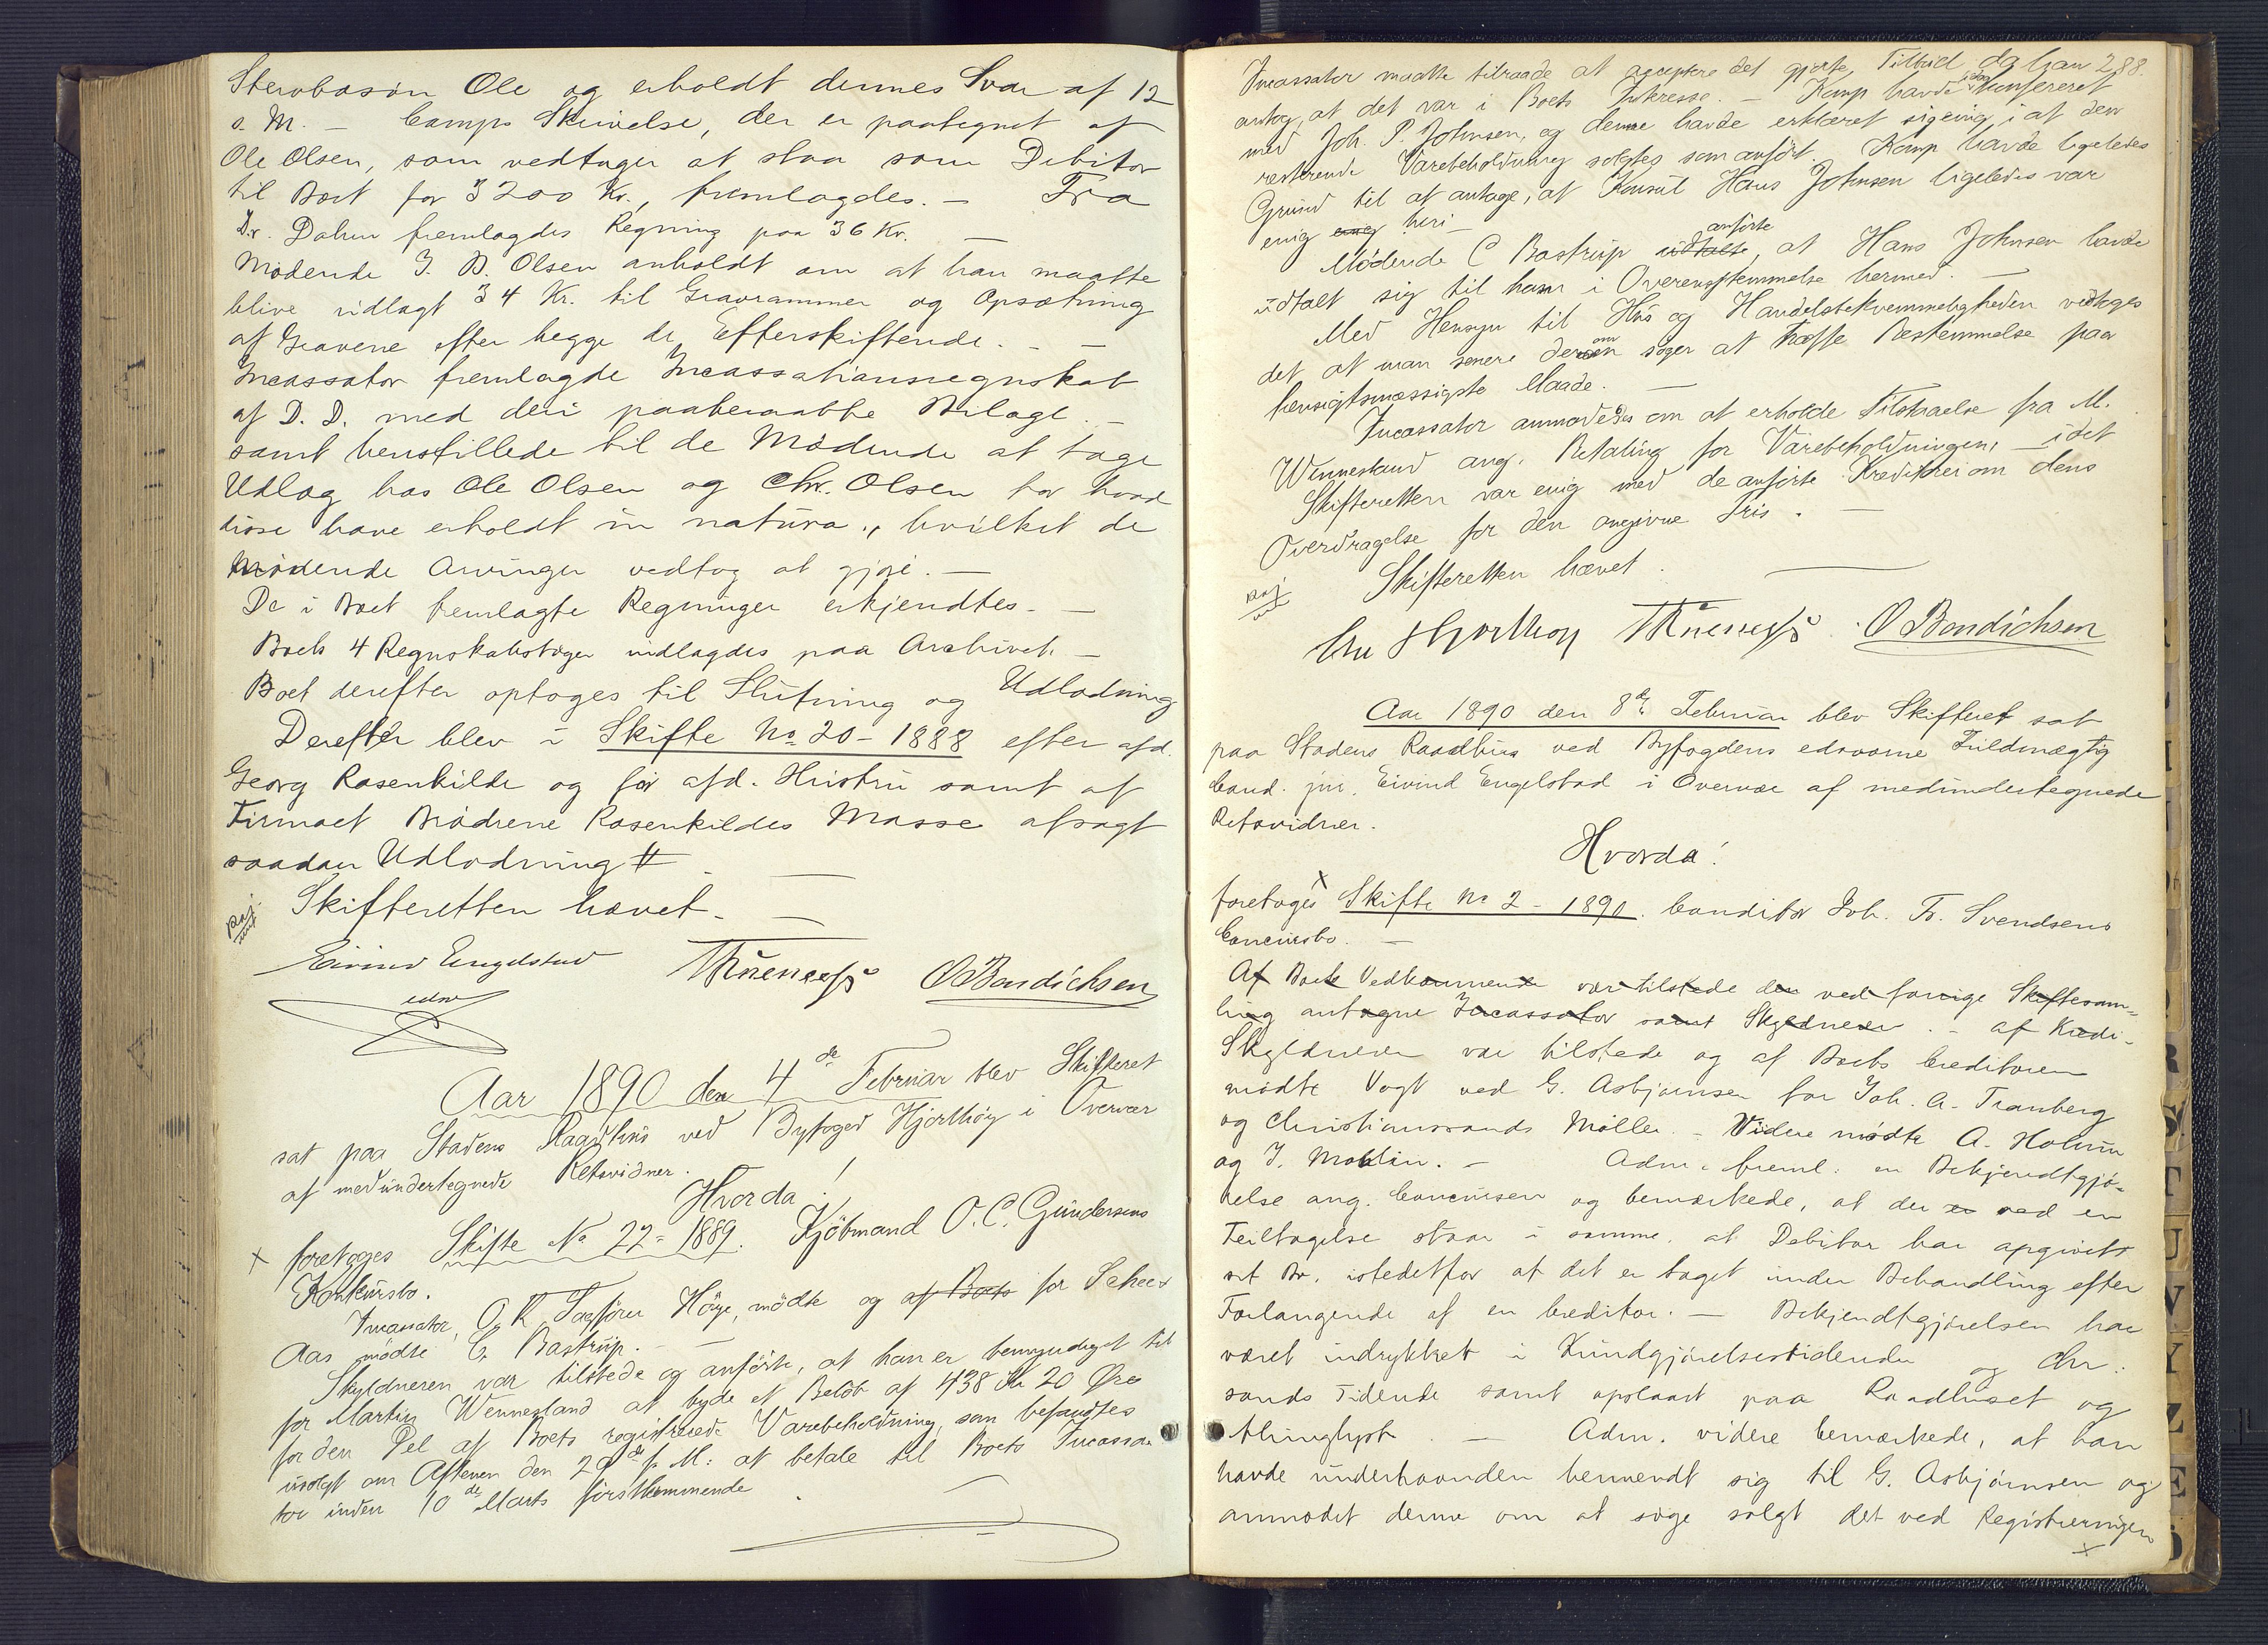 Stervbosön Ole og erholdt dennes Svar af 12
s. M. – Camps Skrivelse, der er paategnet af
Ole Olsen, som vedtager at staa som Debitor
til Boet for 3200 Kr., fremlagdes. – Fra
Dr. Dahm fremlagdes Regning paa 36 Kr. –
Mödende J. B. Olsen anholdt om at han maatte
blive udlagt 34 Kr. til Gravrammer og Opsætning
af Gravene efter begge de Efterskiftende. –
Incassator fremlagde Incassationsregnskab
af D. D. med deri paaberaabte Bilage. –
samt henstillede til de Mödende at tage
Udlæg hos Ole Olsen og Chr. Olsen for hvad
disse have erholdt in natura, hvilket de
Mödende Arvinger vedtog at gjöre. –
De i Boet fremlagte Regninger erkjendtes. –
Boets 4 Regnskabsböger indlagdes paa Archivet. –
Boet derefter optoges til Slutning og Udlodning
Derefter blev i Skifte No 20 – 1888 efter afd.
Georg Rosenkilde og før afd. Hustru samt af
Firmaet Brödrene Rosenkildes Masse afsagt
saadan Udlodning #
Skifteretten hævet. –
Eivind Engelstad
edsv
O Bendichsen
Aar 1890 den 4de Februar blev Skifteret
sat paa Stadens Raadhus ved Byfoged Hjorthöy i Overvær
af medundertegnede Retsvidner.
Hvorda!
x foretoges Skifte No 22 – 1889. Kjöbmand O. C. Gundersens
Konkursbo.
Incassator, O. R. Sagförer Höye, mödte og af Boets for Scheer
Aas mödte C. Bastrup. –
Skyldneren var tilstede og anförte, at han er bemyndiget til
for Martin Wennesland at byde et Belöb af 438 Kr 20 Öre
for den Del af Boets registrerede Varebeholdning, som befandtes
usolgt om Aftenen den 29de f. M: at betale til Boets Incassa-
tor inden 10de Marts förstkommende
288.
Incassator maatte tilraade at acceptere det gjorte Tilbud da han
antog, at det var i Boets Interesse. – Kamp havde idag konfereret
med Joh. P. Johnsen, og denne havde erklæret sig enig i at den
resterende Varebeholdning solgtes som anfört. Kamp havde ligeledes
Grund til at antage, at Konsul Hans Johnsen ligeledes var
enig enig heri –
Mödende C Bastrup udtalte anförte, at Hans Johnsen havde
udtalt sig til ham i Overensstemmelse hermed. –
Med Hensyn til Hus og Handelsbekvemmeligheden vedtoges
det at man senere derom söger at træffe Bestemmelse paa
hensigtsmæssigste Maade. –
Incassator anmodedes om at erholde Tilstaaelse fra M.
Wennesland ang. Betaling for Varebeholdningen, – idet
Skifteretten var enig med de anförte Kreditorer om dens
Overdragelse for den angivne Pris. –
Skifteretten hævet.
Chr Hjorthöy
O Bendichsen
Aar 1890 den 8de Februar blev Skifteret sat
paa Stadens Raadhus ved Byfogdens edsvorne Fuldmægtig
Cand. jur. Eivind Engelstad i Overvær af medundertegnede
Retsvidner.
Hvorda!
foretoges x Skifte No 2 – 1890. Conditor Joh. Fr. Svendsens
Concursbo. –
Af Boets Vedkommende var tilstede den ved forrige Skiftesam-
ling antagne Incassator samt Skyldneren. – af Kredi-
Skyldneren var tilstede og af Boets Creditorer
mödte Vogt ved G. Asbjörnsen for Joh. A. Tranberg
og Christianssands Mölle. – Videre mödte A. Holum
og J. Mohlin. – Adm. freml. en Bekjendtgjö-
relse ang. Concursen og bemærkede, at der er ved en
Feiltagelse staar i samme, at Debitor har opgivet
sit Bo, istedetfor at det er taget under Behandling efter
Forlangende af en Creditor. – Bekjendtgjörelsen har
været indrykket i Kundgjörelsestidende og Chr.
sands Tidende samt opslaaet paa Raadhuset og
thinglyst. – Adm. videre bemærkede, at han
havde underhaanden henvendt sig til G. Asbjörnsen og
anmodet denne om at söge solgt det ved Registreringen
x